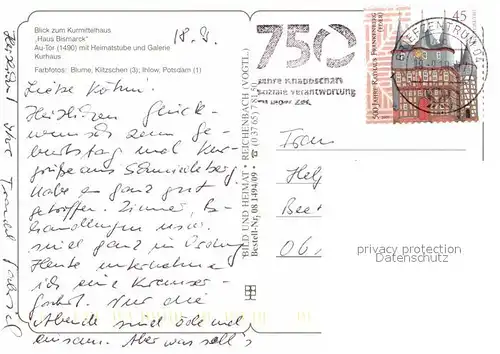 Blick zum Kurmittelhaus
„Haus Bismarck"
Au-Tor (1490) mit Heimatstube und Galerie
Kurhaus
Farbfotos: Blume, Klitzschen (3); Ihlow, Potsdam (1)
18.
Liebe
Herzlichen Glück-
wunsch zum Ge-
burtstag und Kur-
grüße aus Schmiedeberg.
Habe es ganz gut
getroffen. Zimmer, Be-
handlungen usw.
sind ganz in Ordnung
Heute unternehme
ich eine Kremser-
fahrt. Nur die
Abende sind öde und
einsam. Aber was soll's
Herzlichst
BILD UND HEIMAT • REICHENBACH (VOGTL.)
Bestell-Nr. 08 1494/09 • ☎ (0 37 65) 781
750
Jahre Knappschaft
soziale Verantwortung
500 Jahre Rathaus Frankenberg (Eder)
45
BRIEFZENTRUM 04
Frau
Bee
06
privacy protection
Datenschutz